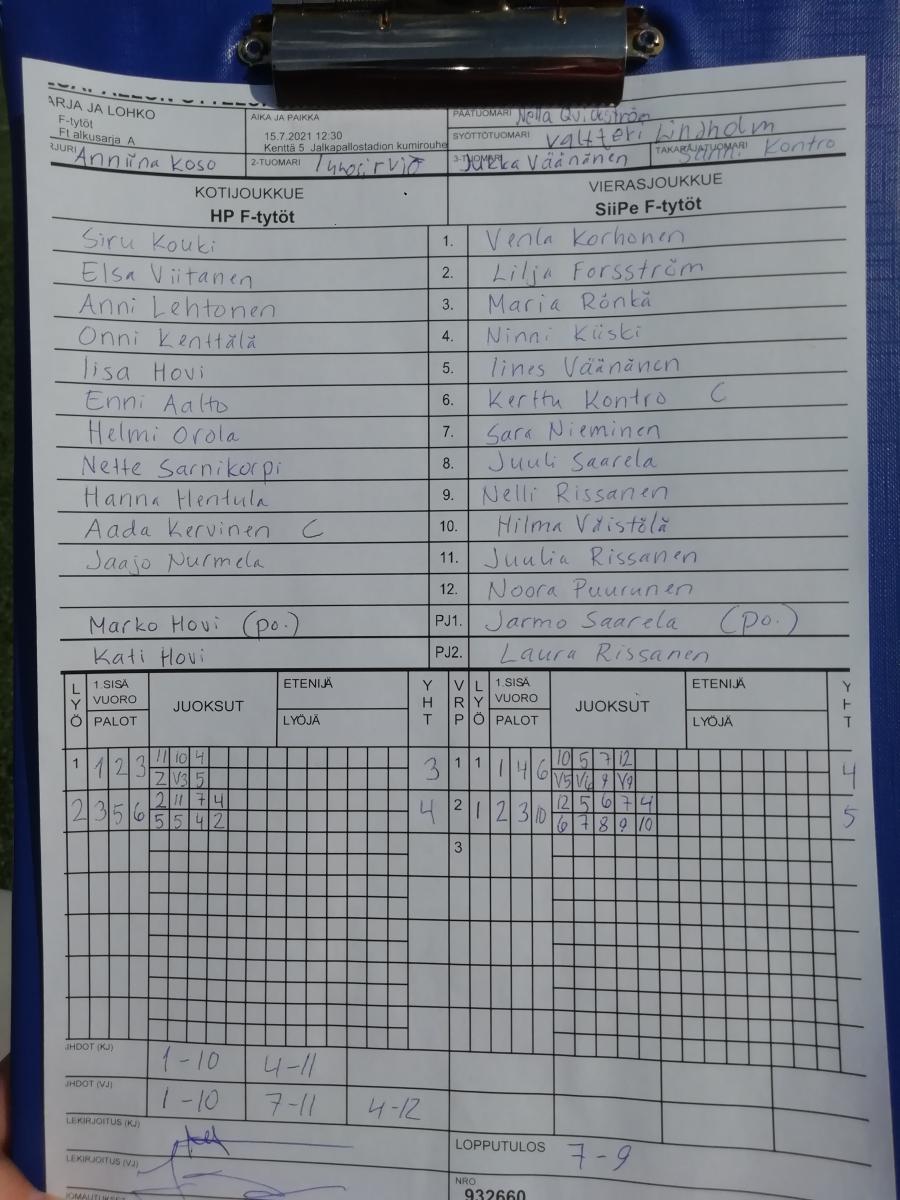 ARJA JA LOHKO
F-tytöt
Ft alkusarja A
Anniina Koso
AIKA JA PAIKKA
15.7.2021 12:30
Kenttä 5 Jalkapallostadion kumirouhe
2-TUOMARI
PÄÄTUOMARI Nella
SYÖTTÖTUOMARI Valtteri Lindholm
3-TUOMARI Jukka Väänänen
TAKARAJATUOMARI Kontro
KOTIJOUKKUE
HP F-tytöt
VIERASJOUKKUE
SiiPe F-tytöt
Siru Kouki 1. Venla Korhonen
Elsa Viitanen 2. Lilja Forsström
Anni Lehtonen 3. Maria Rönkä
Onni Kenttälä 4. Ninni Kiiski
Iisa Hovi 5. Iines Väänänen
Enni Aalto 6. Kerttu Kontro C
Helmi Orola 7. Sara Nieminen
Nette Sarnikorpi 8. Juuli Saarela
Hanna Hentula 9. Nelli Rissanen
Aada Kervinen C 10. Hilma Väistölä
Jaajo Nurmela 11. Juulia Rissanen
12. Noora Puurunen
Marko Hovi (po.) PJ1. Jarmo Saarela (po.)
Kati Hovi PJ2. Laura Rissanen
LYÖ 1.SISÄ VUORO PALOT JUOKSUT ETENIJÄ LYÖJÄ YHT VRP LYÖ 1.SISÄ VUORO PALOT JUOKSUT ETENIJÄ LYÖJÄ YHT
1 1 2 3 11 10 4 3 1 1 1 4 6 10 5 7 12 4
2 V3 5 V5 V6 9 V9
2 3 5 6 2 11 7 4 4 2 1 2 3 10 12 5 6 7 4 5
5 5 4 2 6 7 8 9 10
3
JHDOT (KJ) 1-10 4-11
JHDOT (VJ) 1-10 7-11 4-12
LEKIRJOITUS (KJ)
LOPPUTULOS 7-9
LEKIRJOITUS (VJ)
NRO
932660